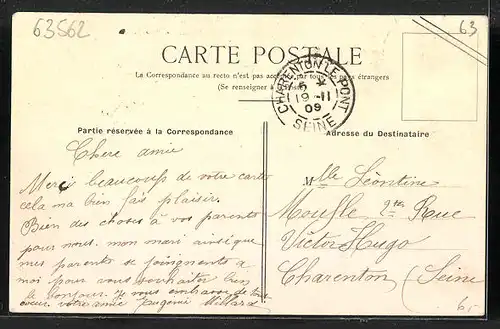 63562
63
CARTE POSTALE
La Correspondance au recto n'est pas acceptée par tous les pays étrangers
(Se renseigner à la Poste)
CHARENTON-LE-PONT
5 *
19 -11
09
SEINE
Partie réservée à la Correspondance
Adresse du Destinataire
Chere amie
Merci beaucoup de votre carte
cela ma bien fais plaisir.
Bien des choses à vos parents
pour nous. mon mari ainsi que
mes parents se joingnents a
moi pour vous souhaiter bien
le bonjour. Je vous embrasse de tout
coeur votre amie Eugénie
Mlle Léontine
Moufle 2ter Rue
Victor Hugo
Charenton (Seine
6,-